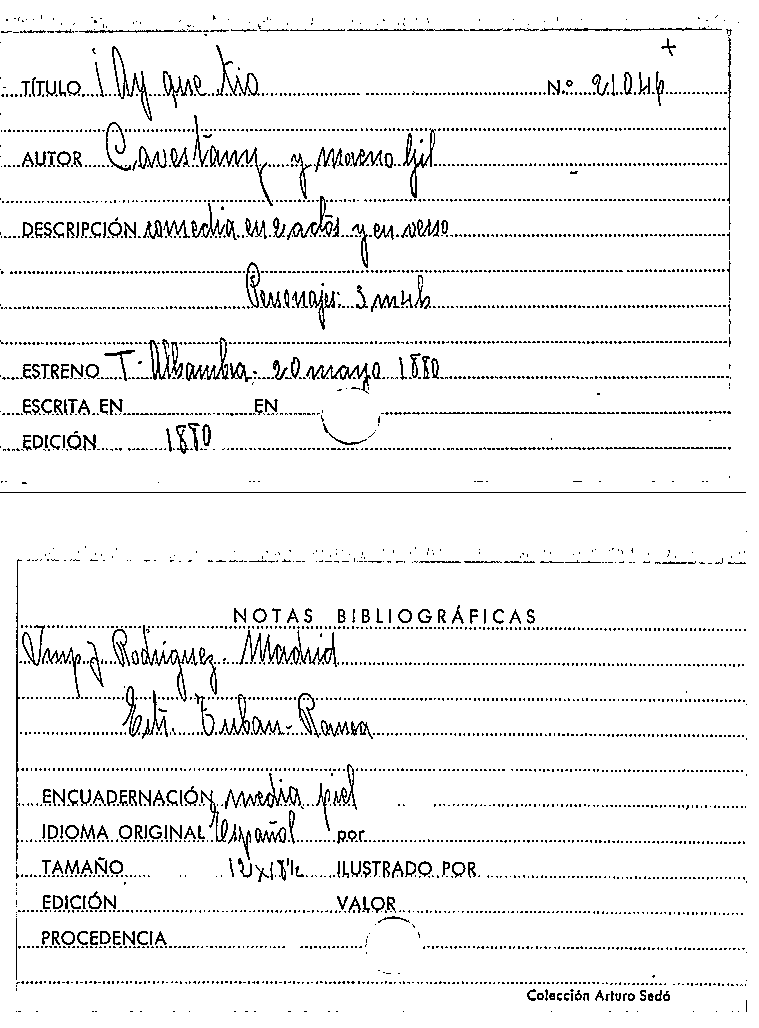 +
TÍTULO ¡Ay que tio N.º 21046
AUTOR Cavestany y Moreno Gil
DESCRIPCIÓN comedia en 2 actos y en verso
Personajes: 3 m 4 h
ESTRENO T. Alhambra. 20 mayo 1880
ESCRITA EN EN
EDICIÓN 1880
NOTAS BIBLIOGRÁFICAS
Imp J Rodriguez. Madrid
Edit.
ENCUADERNACIÓN media piel
IDIOMA ORIGINAL Español por
TAMAÑO 12 x 18½ ILUSTRADO POR
EDICIÓN VALOR
PROCEDENCIA
Colección Arturo Sedó